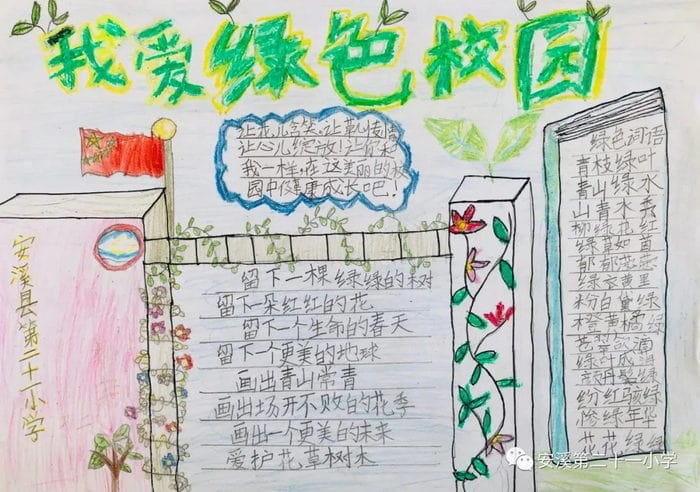 我爱绿色校园
让花儿含笑,让草儿
让心儿绽放!让你和
我一样,在这美丽的校
园中健康成长吧!
安溪县第二十一小学
留下一棵绿绿的树
留下一朵红红的花
留下一个生命的春天
留下一个更美的地球
画出青山常青
画出场开不败的花季
画出一个更美的未来
爱护花草树木
绿色词语
青枝绿叶
青山绿水
山青水秀
柳绿花红
绿草如茵
郁郁葱葱
绿衣黄里
粉白黛绿
橙黄橘绿
纷红骇绿
惨绿年华
花花绿绿
安溪第二十一小学